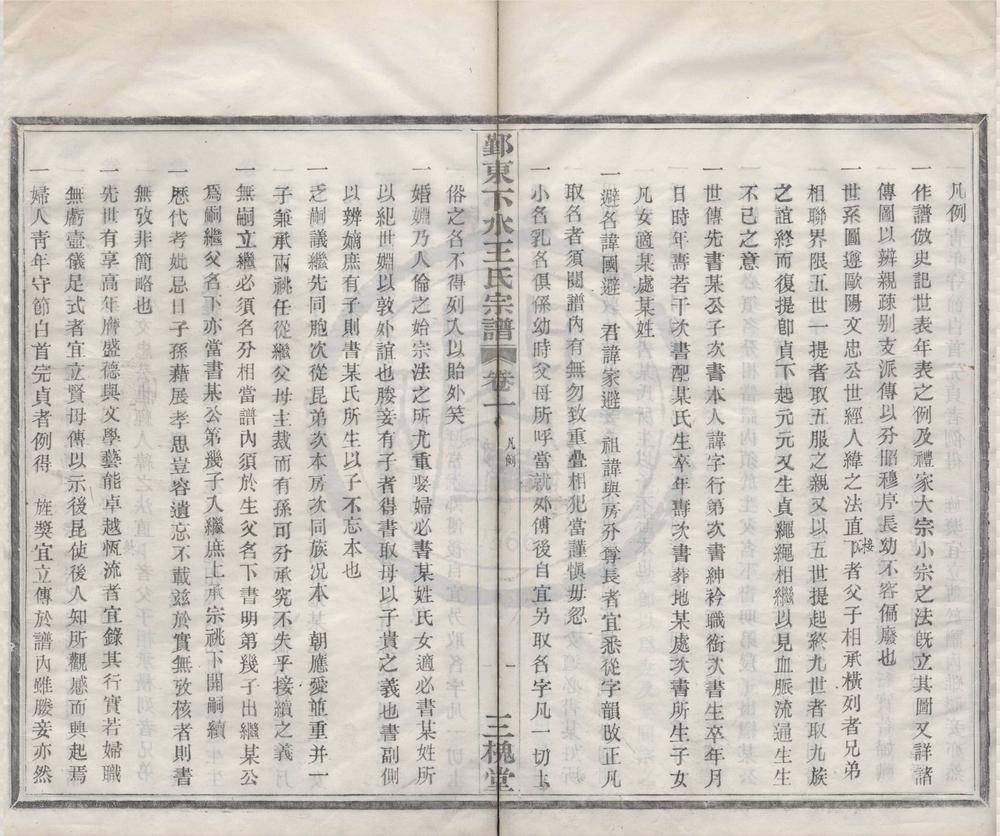 凡例
一作譜倣史記世表年表之例及禮家大宗小宗之法旣立其圖又詳諸
傳圖以辨親疎别支派傳以分昭穆序長幼不容偏廢也
一世系圖遵歐陽文忠公世經人緯之法直下接者父子相承横列者兄弟
相聯界限五世一提者取五服之親又以五世提起終九世者取九族
之誼終而復提卽貞下起元元又生貞繩繩相繼以見血脈流通生生
不已之意
一世傳先書某公子次書本人諱字行第次書紳衿職銜次書生卒年月
日時年壽若干次書配某氏生卒年壽次書葬地某處次書所生子女
凡女適某處某姓
一避名諱國避　君諱家避　祖諱與房分尊長者宜悉從字韻改正凡
取名者須閱譜內有無勿致重疊相犯當謹愼毋忽
一小名乳名俱係幼時父母所呼當就外傅後自宜另取名字凡一切土
鄞東下水王氏宗譜　卷一　凡例　一　三槐堂
俗之名不得列入以貽外笑
一婚姻乃人倫之始宗法之所尤重娶婦必書某姓氏女適必書某姓所
以紀世婣以敦外誼也媵妾有子者得書取母以子貴之義也書副側
以辨嫡庶有子則書某氏所生以子不忘本也
一乏嗣議繼先同胞次從昆弟次本房次同族况本　朝應愛並重并一
子兼承兩祧任從繼父母主裁而有孫可分承究不失乎接續之義
一無嗣立繼必須名分相當譜內須於生父名下書明第幾子出繼某公
爲嗣繼父名下亦當書某公第幾子入繼庶上承宗祧下開嗣續
一歴代考妣忌日子孫藉展孝思豈容遺忘不載兹於實無攷核者則書
無攷非簡略也
一先世有享高年膺盛德與文學藝能卓越恆流者宜錄其行實若婦職
無虧壼儀足式者宜立賢母傳以示後昆使後人知所觀感而興起焉
一婦人靑年守節白首完貞者例得　旌獎宜立傳於譜內雖媵妾亦然